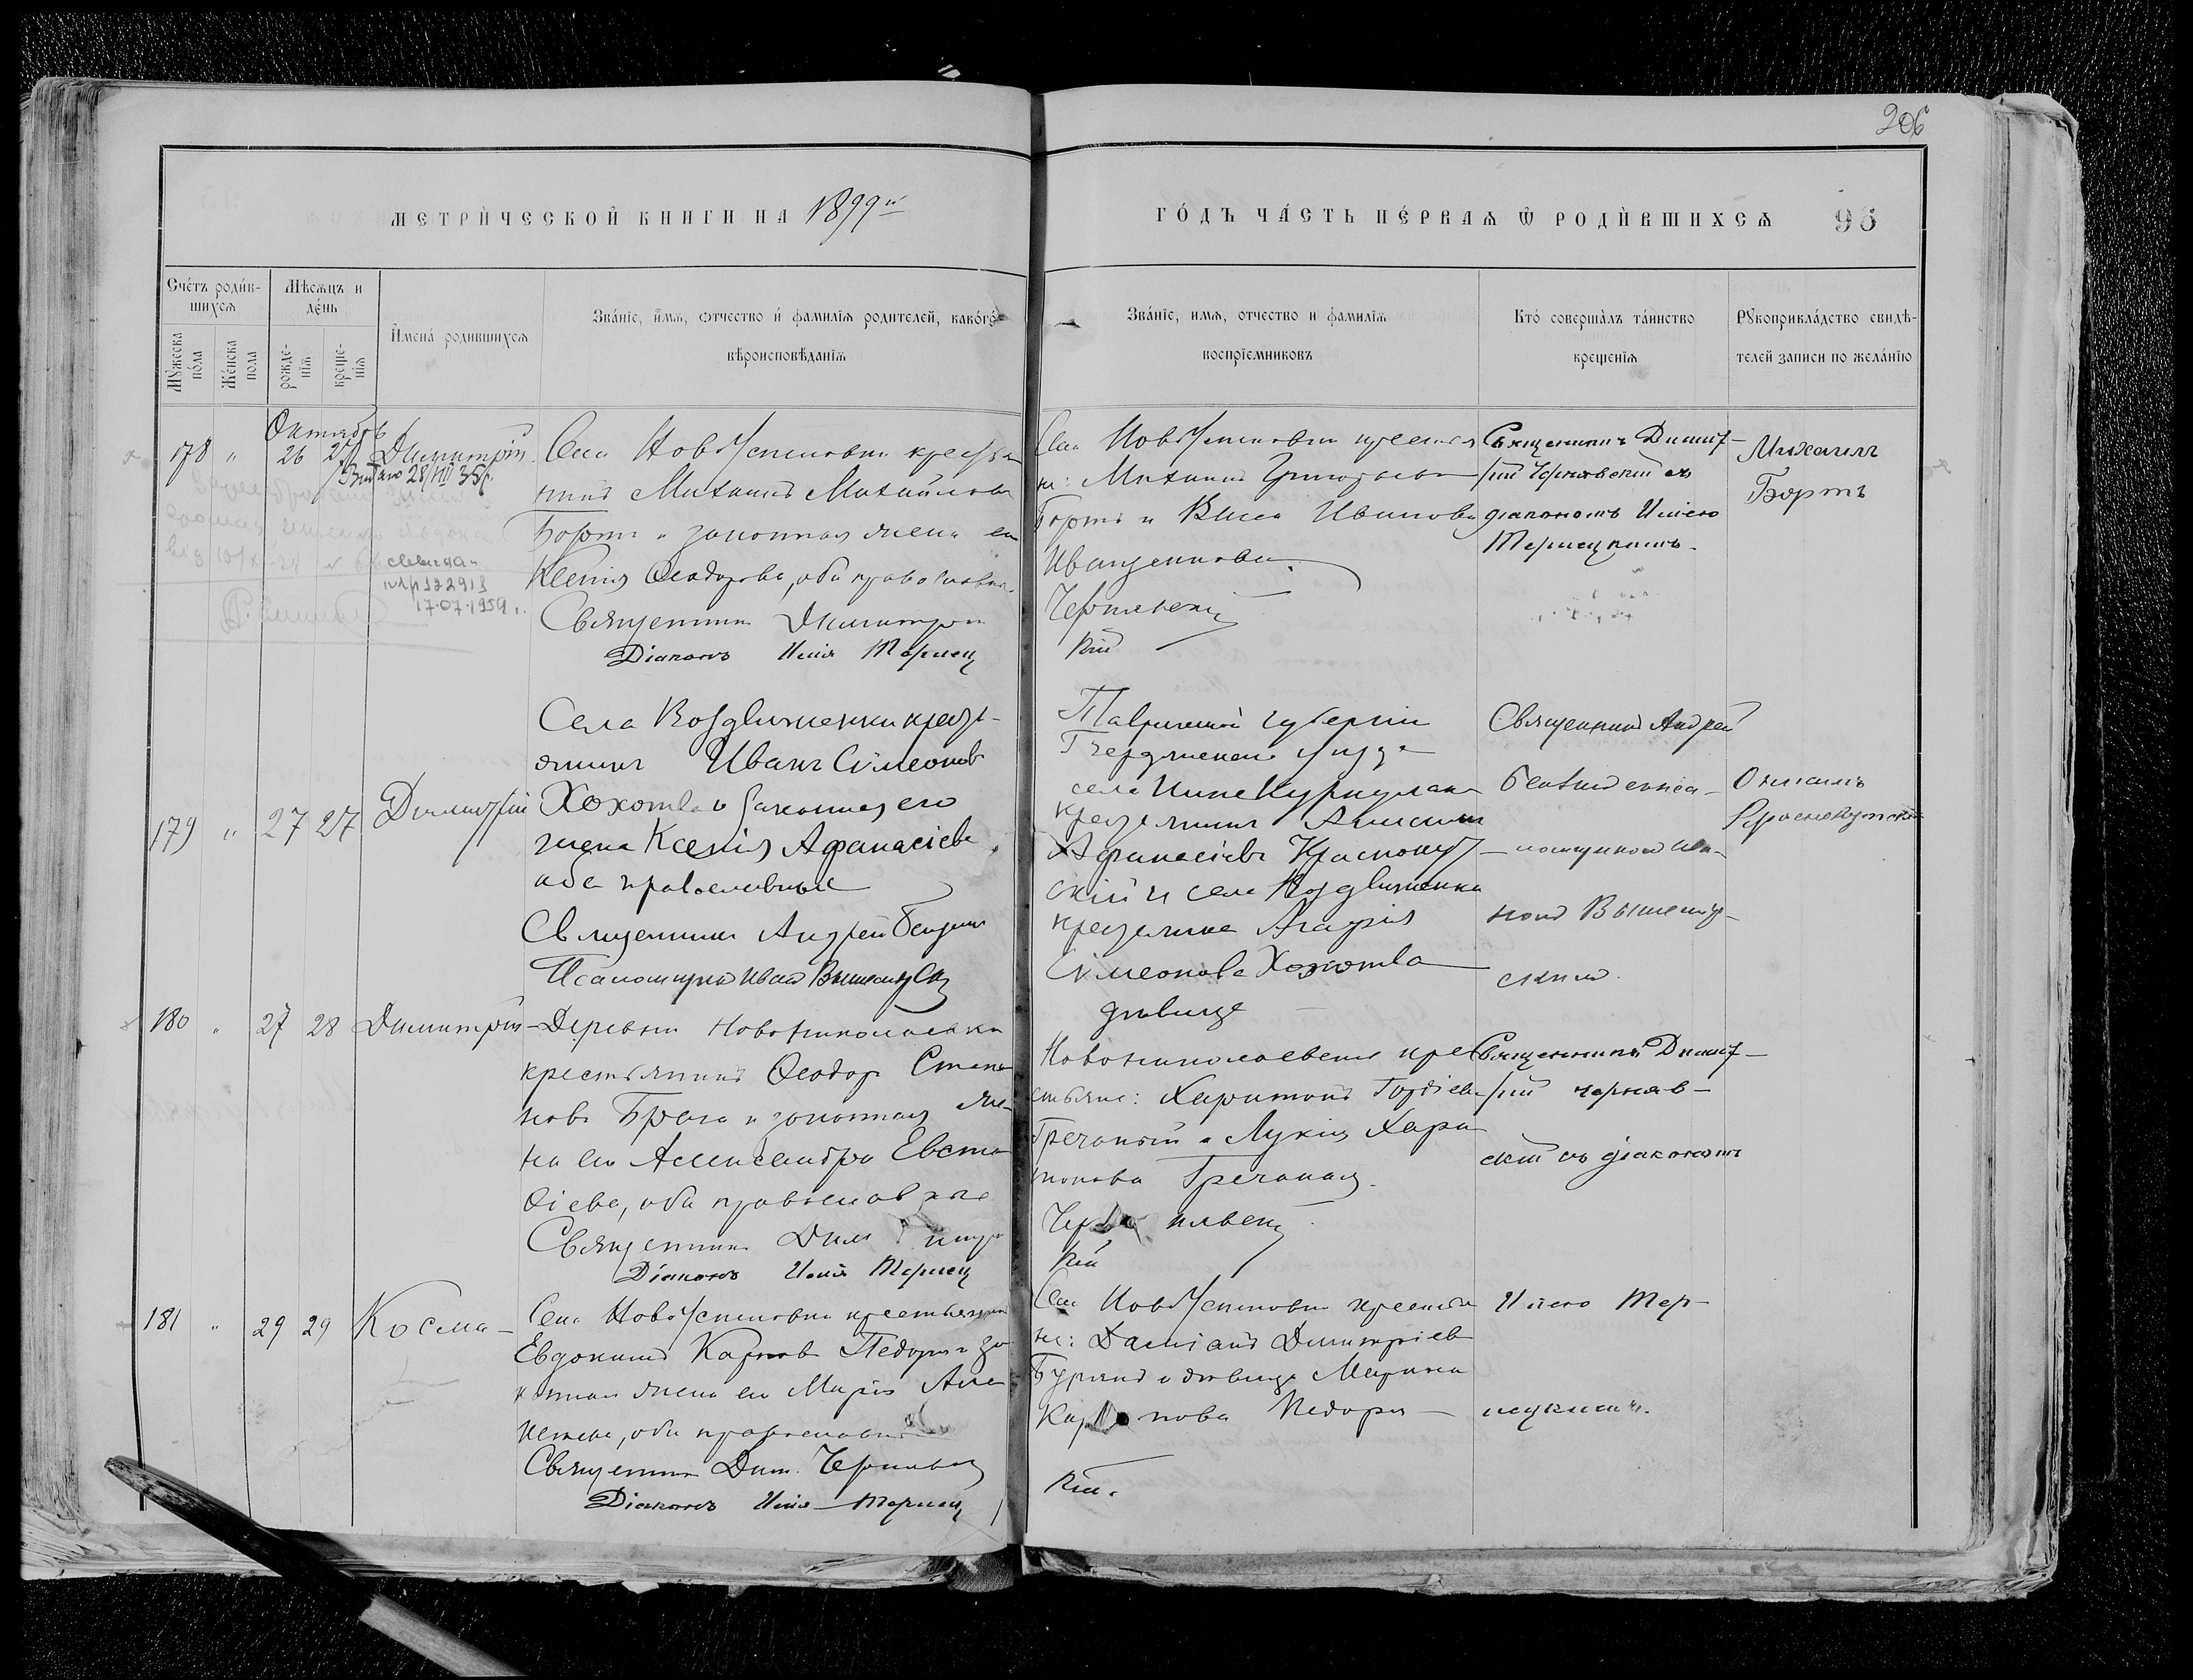 206
МЕТРИЧЕСКОЙ КНИГИ НА 1899й
ГОДЪ ЧАСТЬ ПЕРВАЯ Ѿ РОДИВШИХСЯ 96
Счетъ родившихся
Мѣсяцъ и день
Мужеска пола
Женска пола
рожденія
крещенія
Имена родившихся
Званіе, имя, отчество и фамилія родителей, какого
вѣроисповѣданія
Званіе, имя, отчество и фамилія
воспріемниковъ
Кто совершалъ таинство
крещенія
Рукоприкладство свидѣ-
телей записи по желанію
Октябрь
178 " 26 27 Димитрій
28/VIII 35
17.07.1959
Села НовоУспеновки крестья
нинъ Михаилъ Михайловъ
Бортъ и законная жена его
Ксенія Ѳеодорова, оба православн.
Священникъ Димитрій
Діаконъ Илія Терлец
Села НовоУспеновки крестья
не: Михаилъ Григорьевъ
Бортъ и Васса Иванова
Иващенкова.
Чернявскій
кій
Священникъ Димит-
рій Чернявскій съ
діакономъ Иліею
Терлецкимъ.
Михаилъ
Бортъ
179 " 27 27 Димитрій
Села Воздвиженки кресть-
янинъ Иванъ Сімеоновъ
Хохотва и законная его
жена Ксенія Аѳанасіева,
оба православные
Священникъ Андрей
Псаломщикъ Иванъ
Таврической губерніи
Бердянскаго уѣзда
села
крестьянинъ
Аѳанасіевъ Краснокут-
скій и села Воздвиженки
крестьянка Агафія
Сімеонова Хохотва
дѣвица
Священникъ Андрей
ломщикомъ Ива-
номъ
скимъ
180 " 27 28 Димитрій
Деревни Новониколаевки
крестьянинъ Ѳеодоръ Степа
новъ Брага и законная же
на его Александра Евста
ѳіева, оба православные
Священникъ Дим итр
Діаконъ Илія Терлец
Новониколаевки кре
стьяне: Харитонъ Гордіевъ
Гречаный и Лукія Хари
тонова Гречаная.
Чер нявскій
кій
Священникъ Димит-
рій Черняв-
скій съ діакономъ
181 " 29 29 Косма
Села НовоУспеновки крестьянинъ
Евдокимъ Карповъ Педоря и за
конная жена его Марія Але
ксеева, оба православн
Священникъ Дим. Чернявскій
Діаконъ Илія Терлец
Села НовоУспеновки крестья
не: Даміанъ Димитріевъ
и дѣвица Марина
Кар пова Педоря
кій.
Иліею Тер-
лецкимъ.